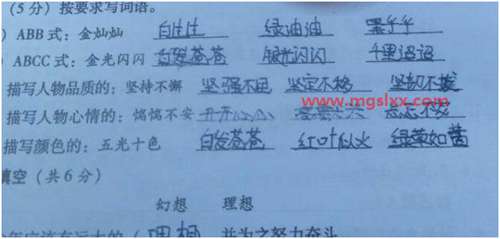 （5分）按要求写词语。
）ABB式：金灿灿 白生生 绿油油 黑乎乎
）ABCC式：金光闪闪 白发苍苍 银光闪闪 千里迢迢
描写人物品质的：坚持不懈 坚强不屈 坚定不移 坚韧不拔
www.mgslxx.com
描写人物心情的：惴惴不安
描写颜色的：五光十色 白发苍苍 红叶似火 绿草如茵
填空（共6分）
幻想 理想
理想 并为之努力奋斗